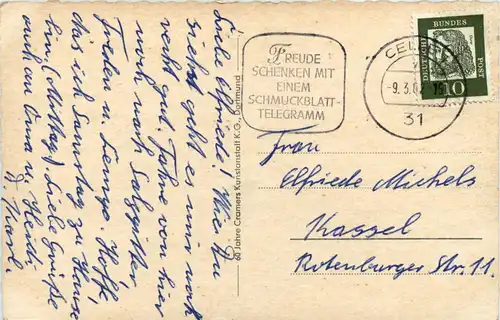 Liebe Elfriede! Wie Du
siehst geht es mir noch
recht gut. Fahre von hier
noch nach Salzgitter
Freden u. Lemgo. Hoffe
das ich Samstag zu Hause
bin (Mittag). Liebe Grüße
auch an Oma u. Heidi
60 Jahre Cramers Kunstanstalt K.-G., Dortmund
FREUDE
SCHENKEN MIT
EINEM
SCHMUCKBLATT-
TELEGRAMM
CELLE
-9.3.6
31
DEUTSCHE BUNDES POST
10
Frau
Elfriede Michels
Kassel
Rotenburger Str. 11.